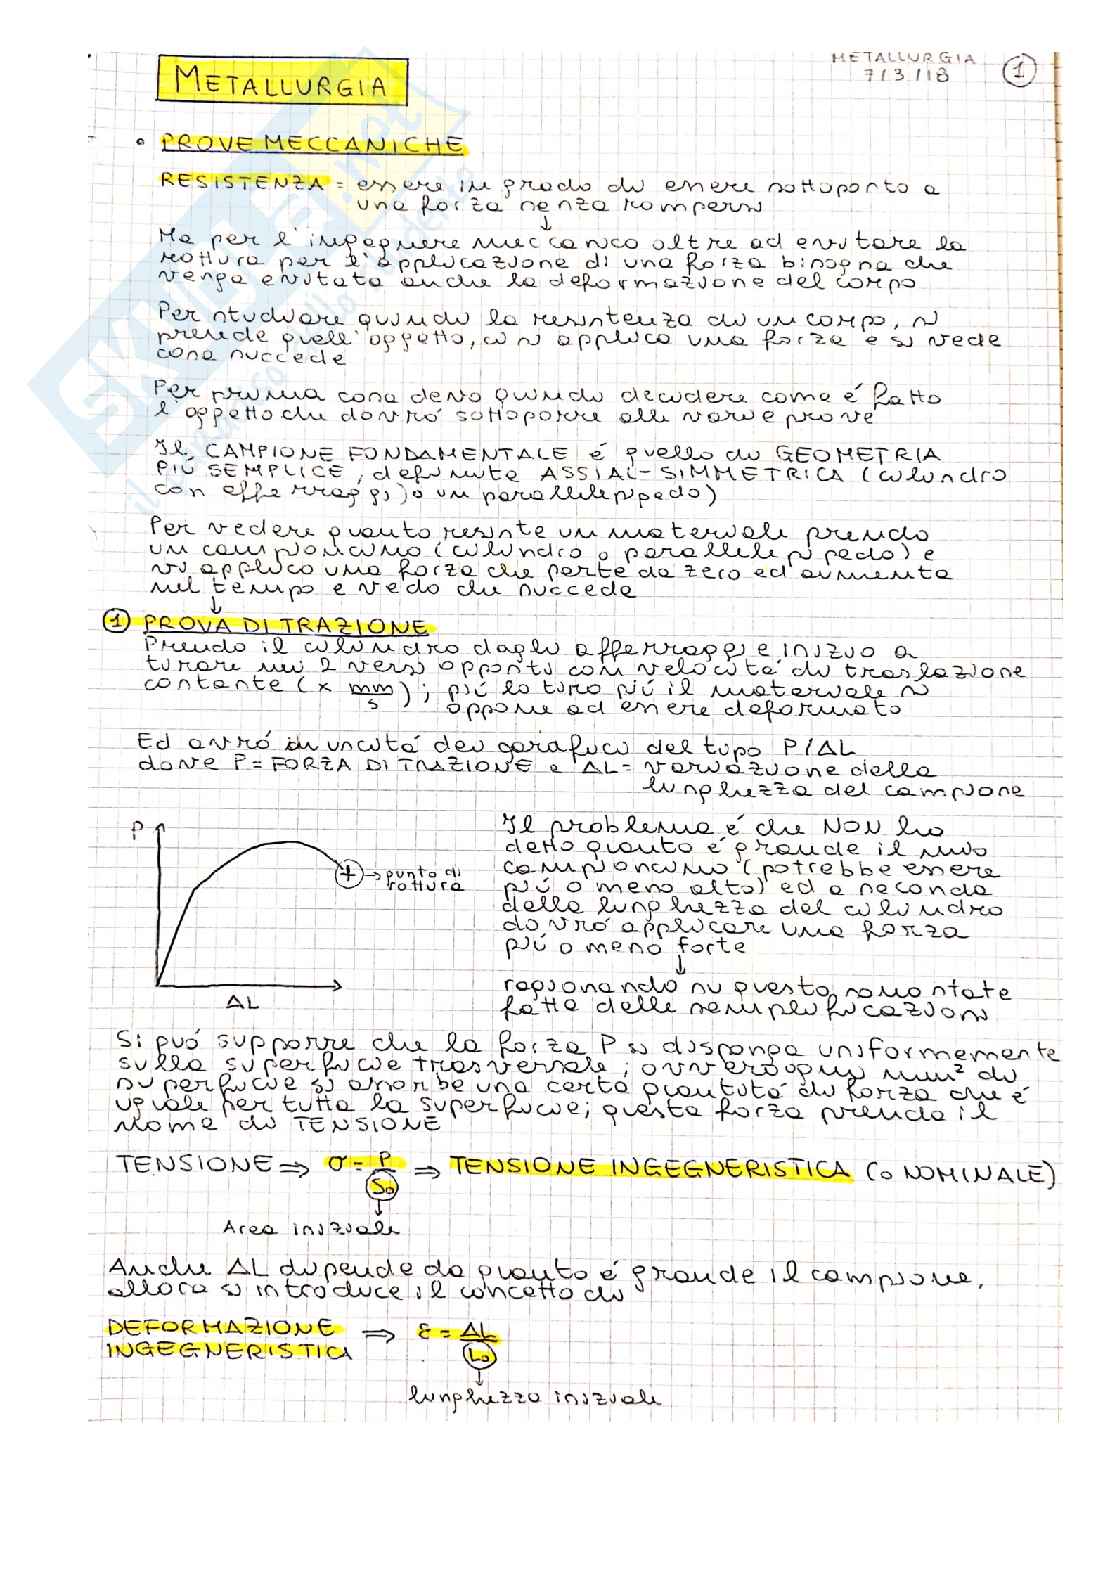 METALLURGIA
7/3/18
1
METALLURGIA
• PROVE MECCANICHE
RESISTENZA = essere in grado di essere sottoposto a
una forza senza rompersi
↓
Ma per l'ingegnere meccanico oltre ad evitare la
rottura per l'applicazione di una forza bisogna che
venga evitata anche la deformazione del corpo
Per studiare quindi la resistenza di un corpo, si
prende quell'oggetto, ci si applica una forza e si vede
cosa succede
Per prima cosa devo quindi decidere come é fatto
l'oggetto che dovró sottoporre alle varie prove
Il CAMPIONE FONDAMENTALE é quello di GEOMETRIA
PIÚ SEMPLICE, definita ASSIAL-SIMMETRICA (cilindro
con afferraggi) o un parallelepipedo)
Per vedere quanto resiste un materiale prendo
un campioncino (cilindro o parallelepipedo) e
vi applico una forza che parte da zero ed aumenta
nel tempo e vedo che succede
↓
1 PROVA DI TRAZIONE
Prendo il cilindro dagli afferraggi e inizio a
tirare nei 2 versi opposti con velocitá di traslazione
costante (x mm/s); piú lo tiro piú il materiale si
oppone ad essere deformato
Ed avró in uscita dei grafici del tipo P/ΔL
dove P = FORZA DI TRAZIONE e ΔL = variazione della
lunghezza del campione
P
ΔL
+ → punto di
rottura
Il problema é che NON ho
detto quanto é grande il mio
campioncino (potrebbe essere
piú o meno alto) ed a seconda
della lunghezza del cilindro
dovró applicare una forza
piú o meno forte
↓
ragionando su questo sono state
fatte delle semplificazioni
Si puó supporre che la forza P si disponga uniformemente
sulla superficie trasversale; ovvero ogni mm² di
superficie si assorbe una certa quantitá di forza che é
uguale per tutta la superficie; questa forza prende il
nome di TENSIONE
TENSIONE ⇒ σ = P/S₀ ⇒ TENSIONE INGEGNERISTICA (o NOMINALE)
↓
Area iniziale
Anche ΔL dipende da quanto é grande il campione,
allora si introduce il concetto di
DEFORMAZIONE
INGEGNERISTICA ⇒ ε = ΔL/L₀
↓
lunghezza iniziale